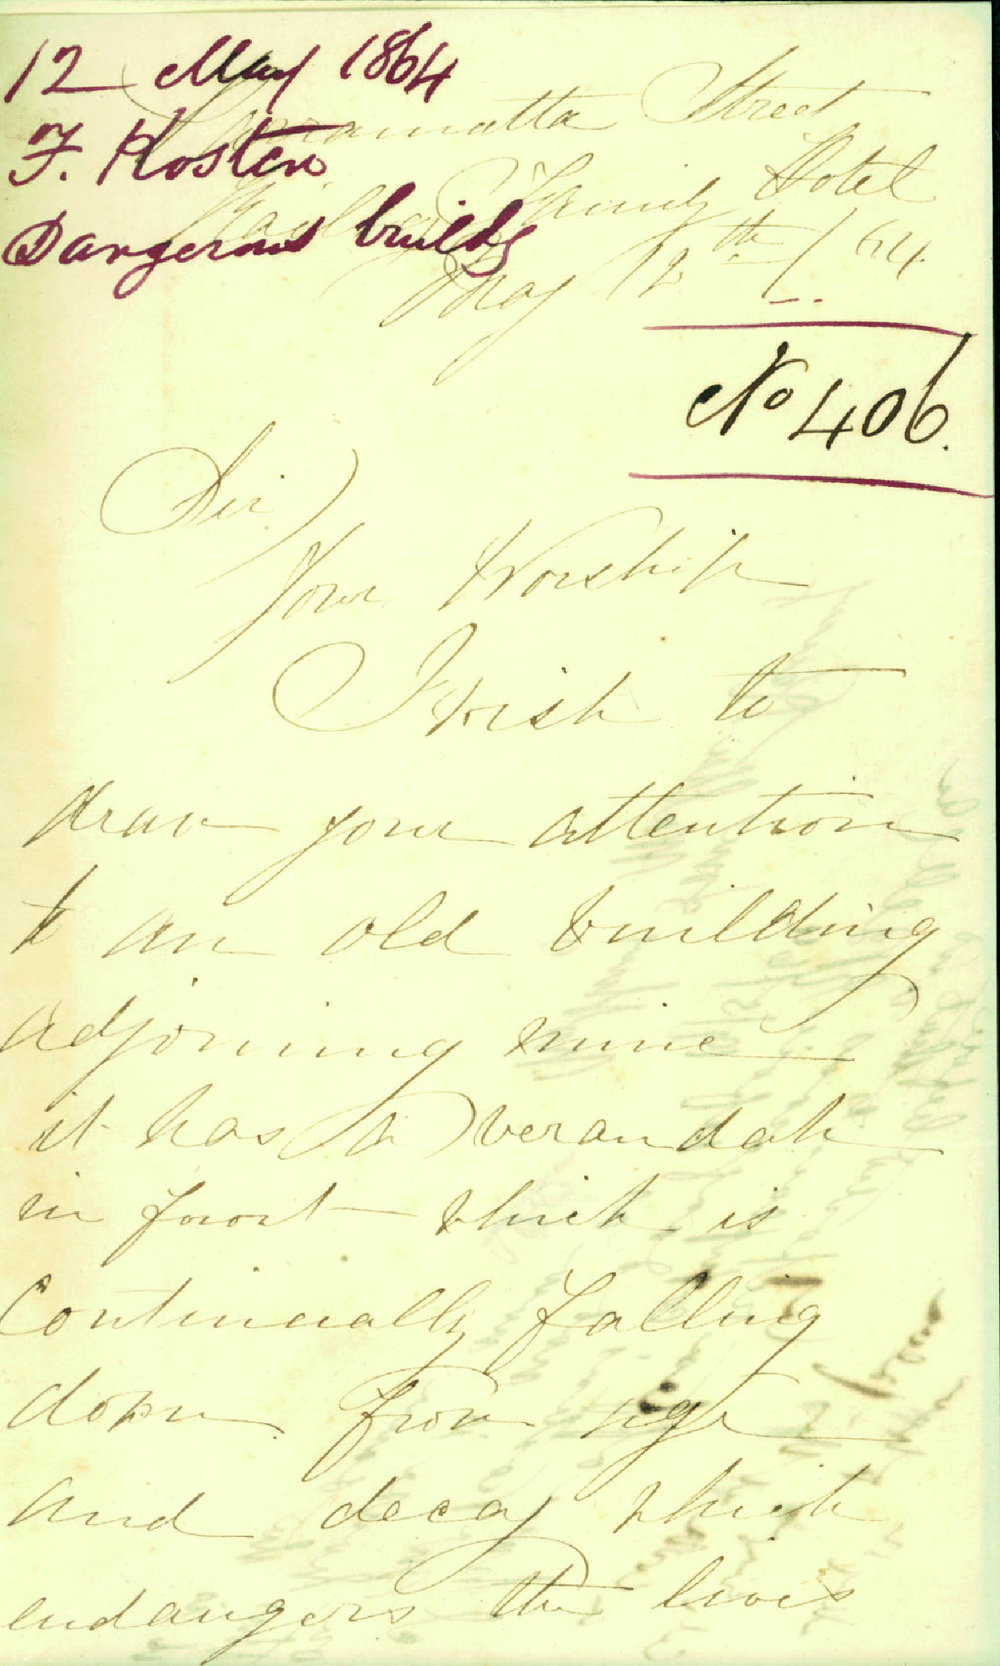 12 May 1864
F. Kosten
Dangerous buildg
Parramatta Street
Railway Family Hotel
May 12th / 64
No 406.
Sir
Your Worship
I wish to
draw your attention
to an old building
adjoining mine
it has a verandah
in front which is
Continually falling
down from age
and decay which
endangers the lives